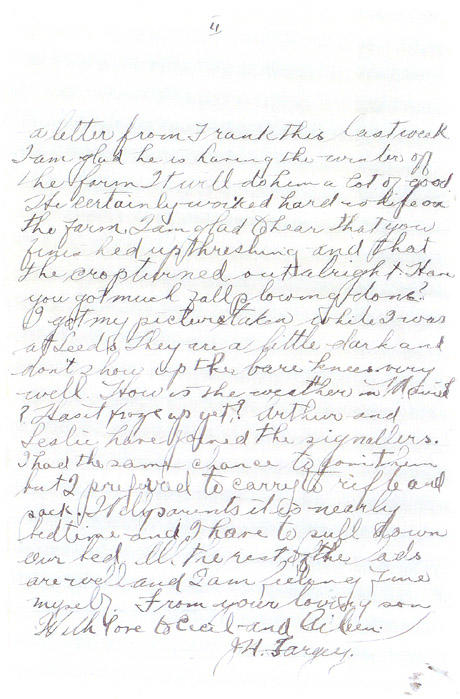 4
a letter from Frank this last week
I am glad he is having the winter off
the farm It will do him a lot of good
He certainly worked hard is life on
the farm. I am glad to hear that you
finished up threshing and that
the crop turned out alright Have
you got much fall plowing done?
I got my picture taken while I was
at Leeds They are a little dark and
don't show up the bare knees very
well. How is the weather in
? Has it froze up yet? Arthur and
Leslie have joined the signallers.
I had the same chance to join them
but I preferred to carry a rifle and
sack. Well parents it is nearly
bedtime and I have to pull down
our bed. All the rest of the lads
are well and I am feeling fine
myself. From your loving son
With love to Cecil and Aileen.
J.H. Fargey.